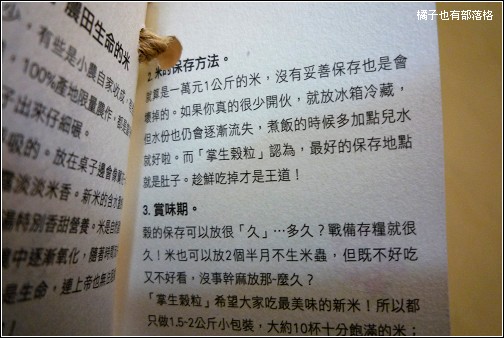 橘子也有部落格
農田生命的米
有些是小農自家收成
100%產地限量農作
子出來仔細碾。
呼吸的。放在桌子邊會像
淡淡米香。新米的含水
特別香甜營養。米是自然
中逐漸氧化，隨著時間
是生命，連上帝也無
2. 米的保存方法。
就算是一萬元1公斤的米，沒有妥善保存也是會
壞掉的。如果你真的很少開伙，就放冰箱冷藏，
但水份也仍會逐漸流失，煮飯的時候多加點兒水
就好啦。而「掌生穀粒」認為，最好的保存地點
就是肚子。趁鮮吃掉才是王道！
3. 賞味期。
穀的保存可以放很「久」…多久？戰備存糧就很
久！米也可以放2個半月不生米蟲，但既不好吃
又不好看，沒事幹麻放那-麼久？
「掌生穀粒」希望大家吃最美味的新米！所以都
只做1.5-2公斤小包裝，大約10杯十分飽滿的米；